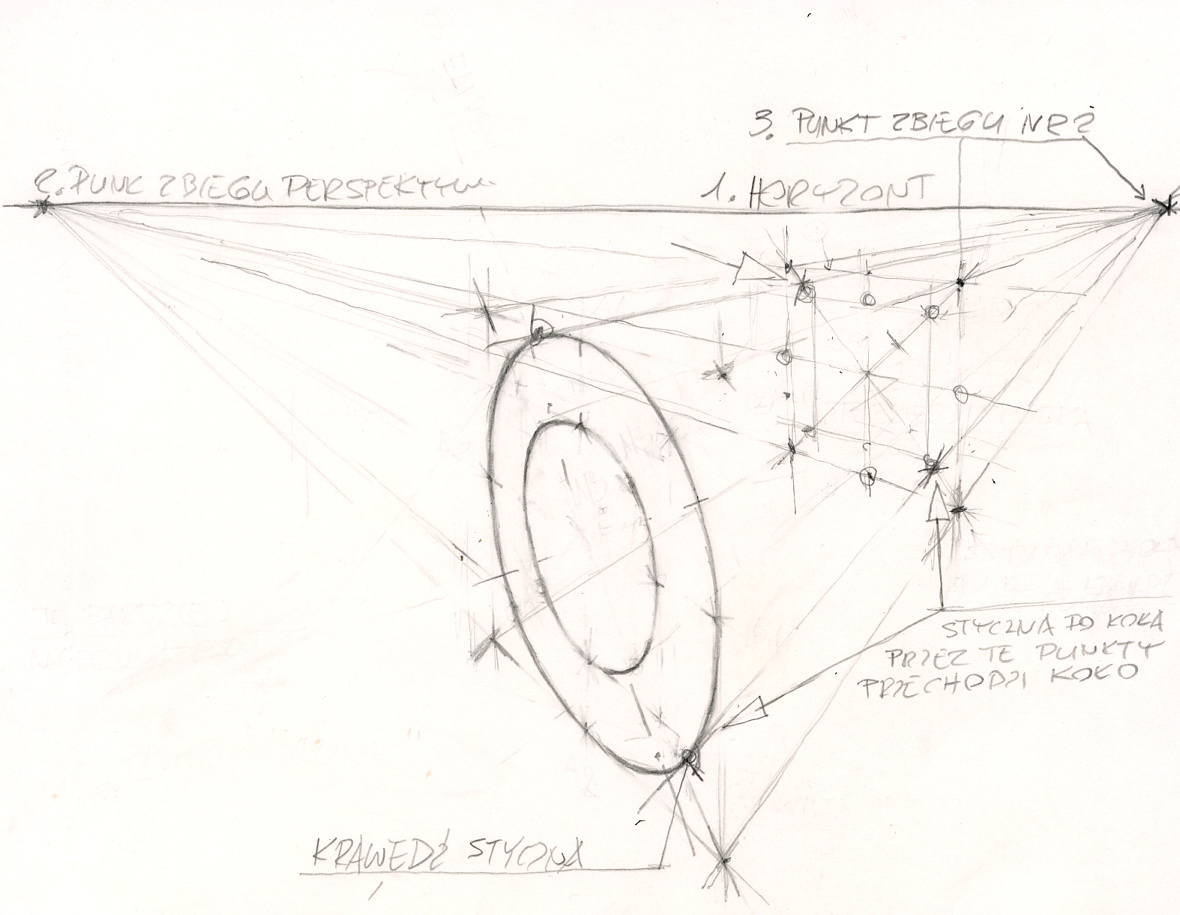 3. PUNKT ZBIEGU NR 2
2. PUNK ZBIEGU PERSPEKTYW
1. HORYZONT
STYCZNA DO KOŁA
PRZEZ TE PUNKTY
PRZECHODZI KOŁO
KRAWĘDŹ STYCZNA